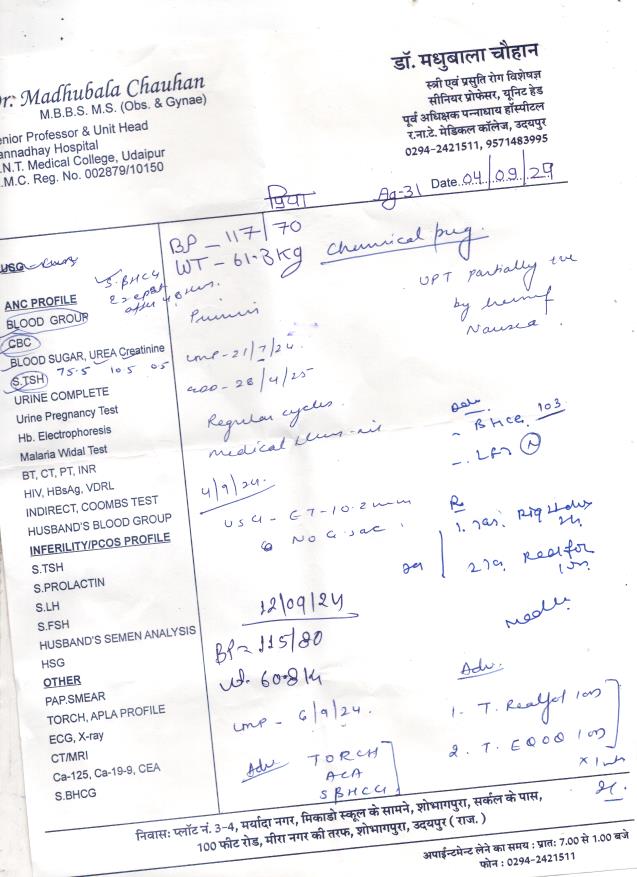 Dr. Madhubala Chauhan
M.B.B.S. M.S. (Obs. & Gynae)
enior Professor & Unit Head
annadhay Hospital
.N.T. Medical College, Udaipur
.M.C. Reg. No. 002879/10150
डॉ. मधुबाला चौहान
स्त्री एवं प्रसुति रोग विशेषज्ञ
सीनियर प्रोफेसर, यूनिट हेड
पूर्व अधिक्षक पन्नाधाय हॉस्पीटल
र.ना.टे. मेडिकल कॉलेज, उदयपुर
0294-2421511, 9571483995
प्रिया Ag-31 Date..04/09/24
USG
S. BHCG
after 48 hours.
ANC PROFILE
BLOOD GROUP
CBC
BLOOD SUGAR, UREA Creatinine
75.5 10.5 05
S.TSH
URINE COMPLETE
Urine Pregnancy Test
Hb. Electrophoresis
Malaria Widal Test
BT, CT, PT, INR
HIV, HBsAg, VDRL
INDIRECT, COOMBS TEST
HUSBAND'S BLOOD GROUP
INFERILITY/PCOS PROFILE
S.TSH
S.PROLACTIN
S.LH
S.FSH
HUSBAND'S SEMEN ANALYSIS
HSG
OTHER
PAP.SMEAR
TORCH, APLA PROFILE
ECG, X-ray
CT/MRI
Ca-125, Ca-19-9, CEA
S.BHCG
BP - 117/70
WT - 61.3 Kg
Chemical preg.
UPT partially +ve
by herself
Nausea
Primi
LMP - 21/7/24
EDD - 28/4/25
Regular cycles.
Medical illness - nil
- BHCG 103
- LFT N
4/9/24.
USG - ET - 10.2 mm
No G. sac
Rx
12/09/24
BP = 115/80
wt. 60.8 K
LMP - 6/9/24.
Adv TORCH
ACA
S BHCG
Adv.
1. T.
2. T.
निवास: प्लॉट नं. 3-4, मर्यादा नगर, मिकाडो स्कूल के सामने, शोभागपुरा, सर्कल के पास,
100 फीट रोड, मीरा नगर की तरफ, शोभागपुरा, उदयपुर ( राज. )
अपाईन्टमेन्ट लेने का समय : प्रात: 7.00 से 1.00 बजे
फोन : 0294-2421511